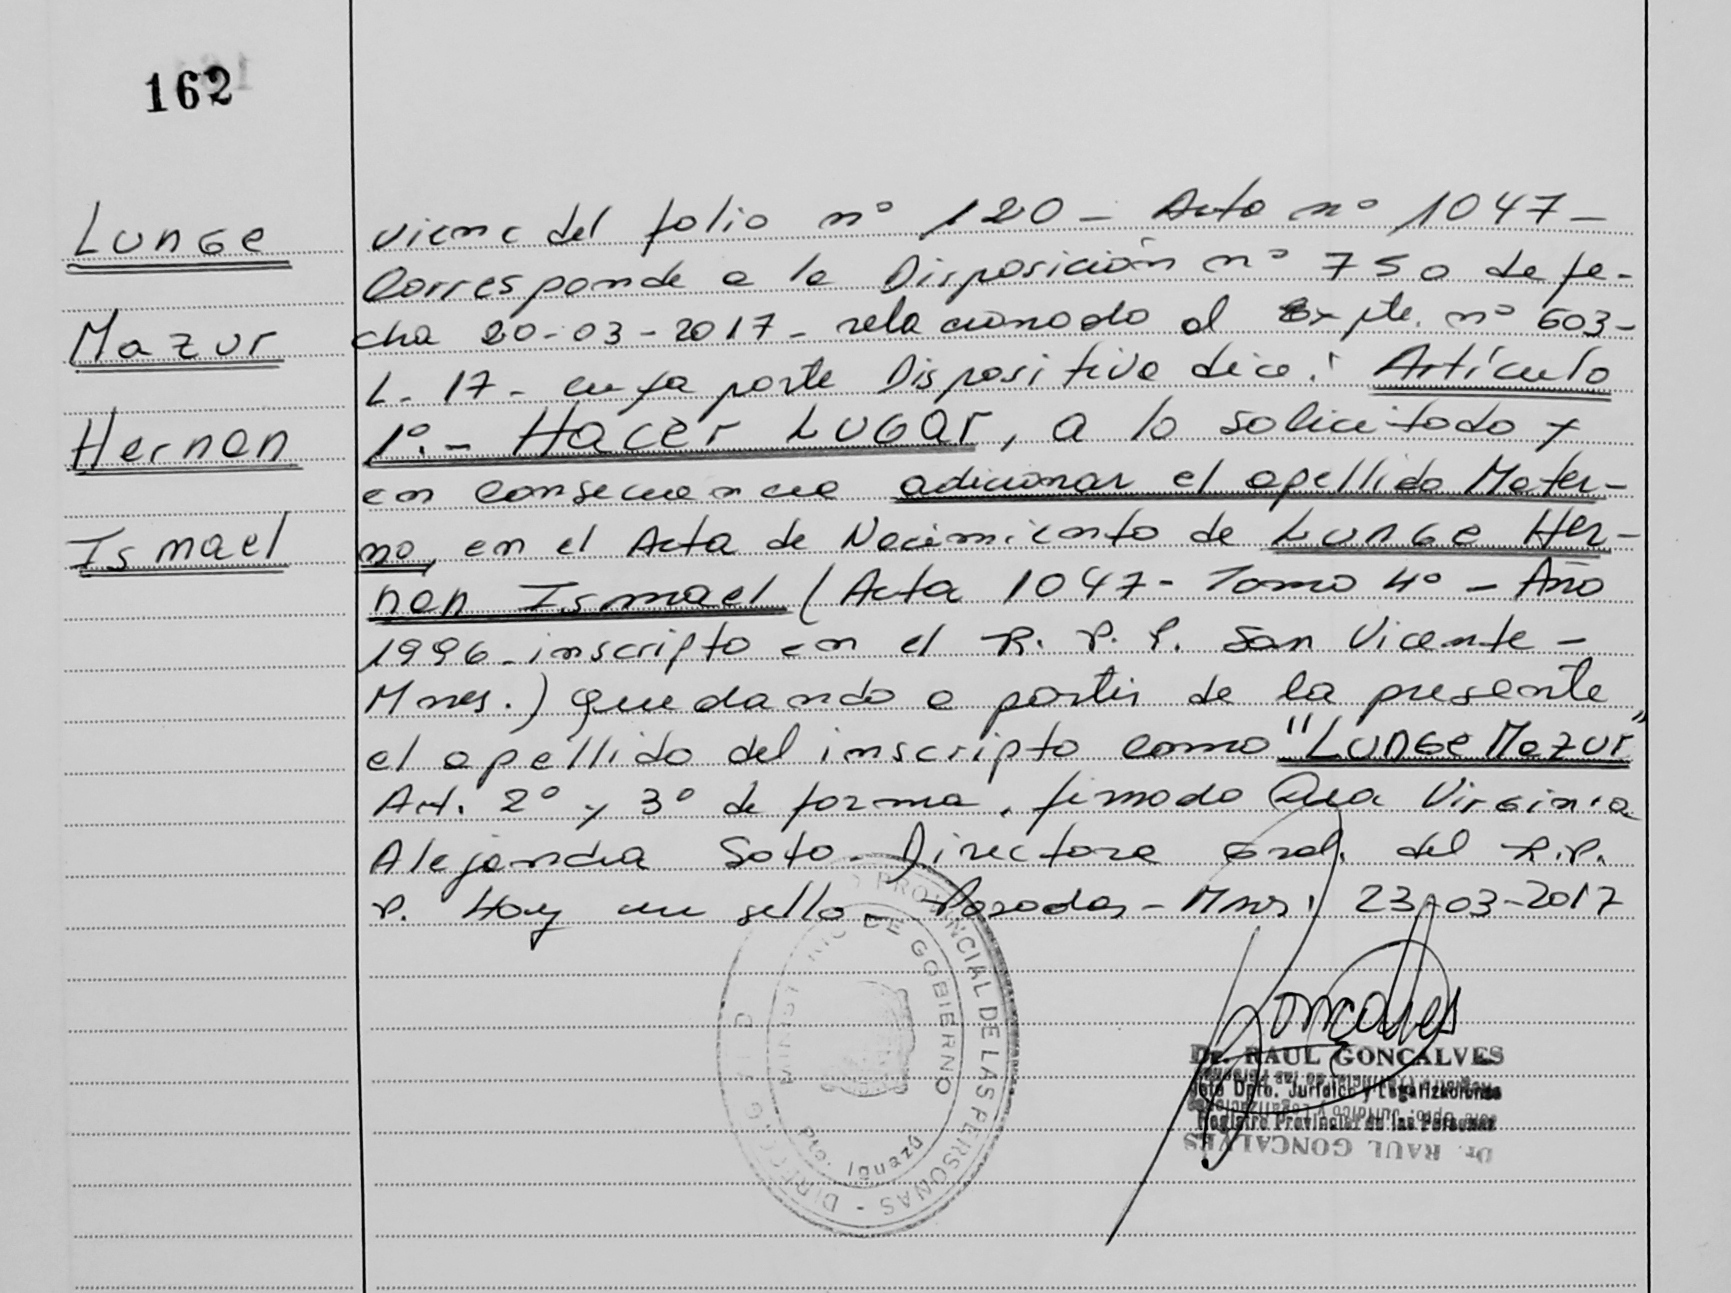 162
Lunge
Mazur
Hernan
Ismael
viene del folio nº 120 - Acta nº 1047 -
Corresponde a la Disposición nº 750 de fe-
cha 20-03-2017 - relacionado al Expte. nº 603-
L. 17 - cuya parte Dispositiva dice: Artículo
1º.- Hacer Lugar, a lo solicitado y
en consecuencia adicionar el apellido Mater-
no, en el Acta de Nacimiento de Lunge Her-
nan Ismael (Acta 1047 - Tomo 4º - Año
1996 - inscripto en el R. P. P. San Vicente -
Mnes.) quedando a partir de la presente
el apellido del inscripto como "Lunge Mazur"
Art. 2º y 3º de forma. firmado Dra Virginia
Alejandra Soto - Directora Gral. del R.P.
P. Hay un sello - Posadas - Mnes, 23-03-2017
PROVINCIAL DE LAS PERSONAS
MINISTERIO DE GOBIERNO
Pto. Iguazú
Goncalves
Dr. RAUL GONCALVES
Jefe Dpto. Jurídico y Legalizaciones
Registro Provincial de las Personas